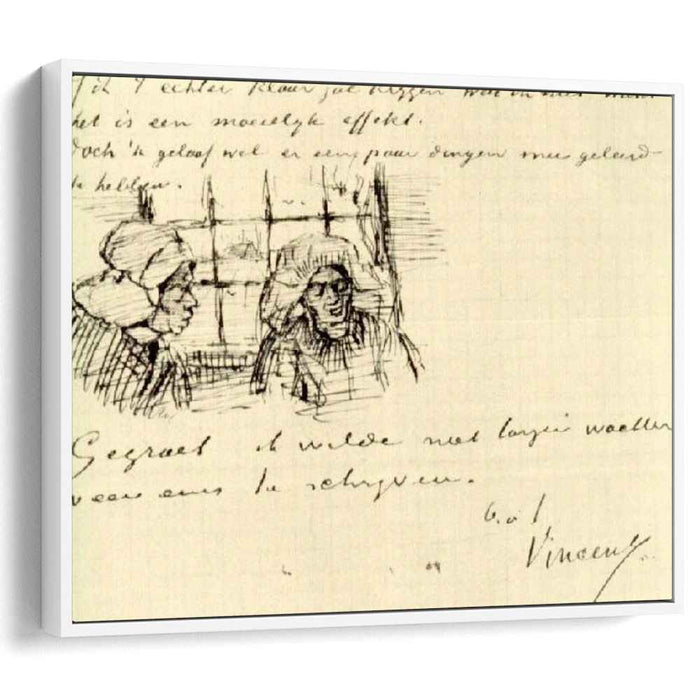 ik 't echter klaar zal krygen
het is een moeielyk effekt.
Doch 'k geloof wel er een paar dingen mee geleerd
te hebben.
Gegroet ik wilde niet langer wachten
weer eens te schryven.
t.à t.
Vincent